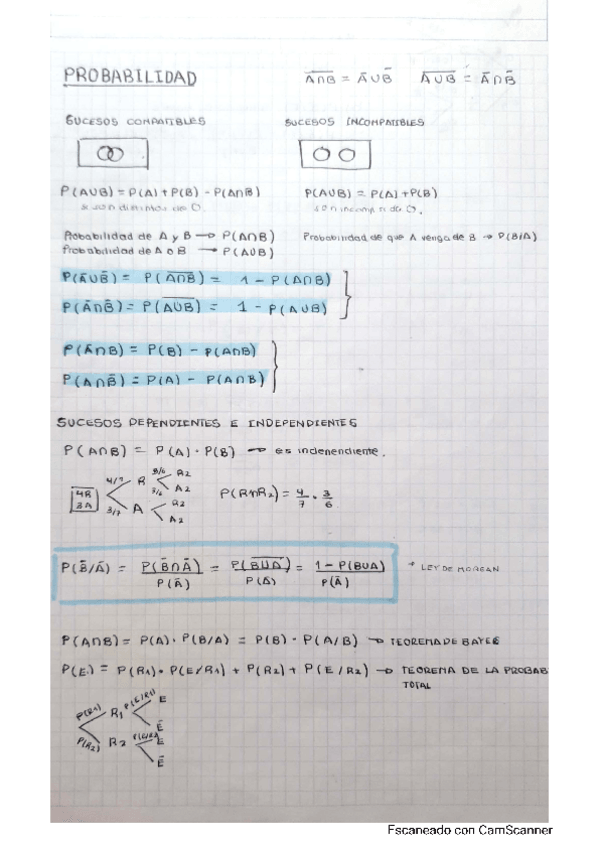 PROBABILIDAD
A̅∩̅B̅ = A̅ ∪ B̅ A̅∪̅B̅ = A̅ ∩ B̅
SUCESOS COMPATIBLES SUCESOS INCOMPATIBLES
P(A∪B) = P(A) + P(B) - P(A∩B) P(A∪B) = P(A) + P(B)
Probabilidad de A y B → P(A∩B) Probabilidad de que A venga de B → P(B/A)
Probabilidad de A o B → P(A∪B)
P(A̅∪B̅) = P(A̅∩̅B̅) = 1 - P(A∩B)
P(A̅∩B̅) = P(A̅∪̅B̅) = 1 - P(A∪B)
P(A̅∩B) = P(B) - P(A∩B)
P(A∩B̅) = P(A) - P(A∩B)
SUCESOS DEPENDIENTES E INDEPENDIENTES
P(A∩B) = P(A) · P(B) → es independiente.
4R 3A
4/7 R R2 A2
3/7 A R2 A2
P(R∩R2) = 4/7 · 3/6
P(B̅/A̅) = P(B̅∩A̅)/P(A̅) = P(B̅∪̅A̅)/P(A̅) = 1 - P(B∪A)/P(A̅) * LEY DE MORGAN
P(A∩B) = P(A) · P(B/A) = P(B) · P(A/B) → TEOREMA DE BAYES
P(E) = P(R1) · P(E/R1) + P(R2) + P(E/R2) → TEOREMA DE LA PROBAB
TOTAL
P(R1) R1 P(E/R1) E E̅
P(R2) R2 P(E/R2) E E̅
Escaneado con CamScanner